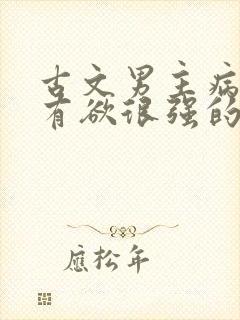 古文男主病
有欲很强的
應松年